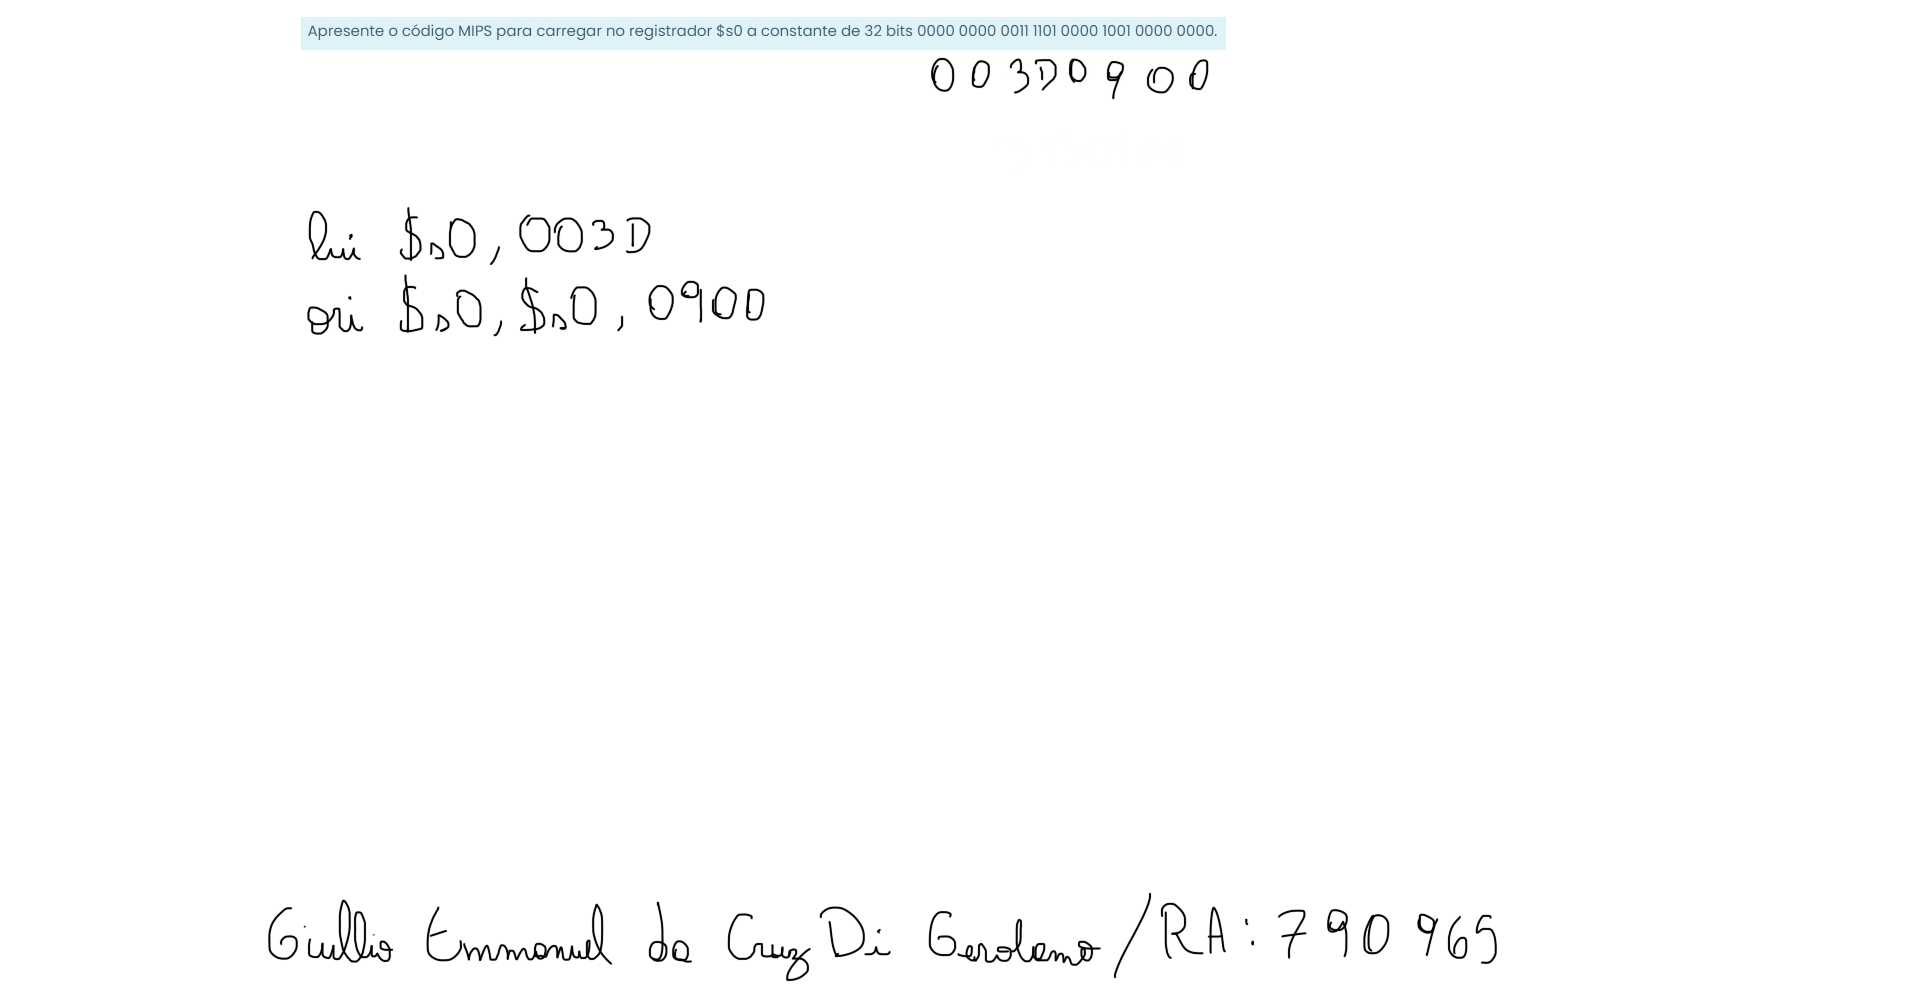 Apresente o código MIPS para carregar no registrador $s0 a constante de 32 bits 0000 0000 0011 1101 0000 1001 0000 0000.
0 0 3 D 0 9 0 0
lui $s0, 003D
ori $s0, $s0, 0900
Giullio Emmanuel da Cruz Di Gerolamo / RA: 790965